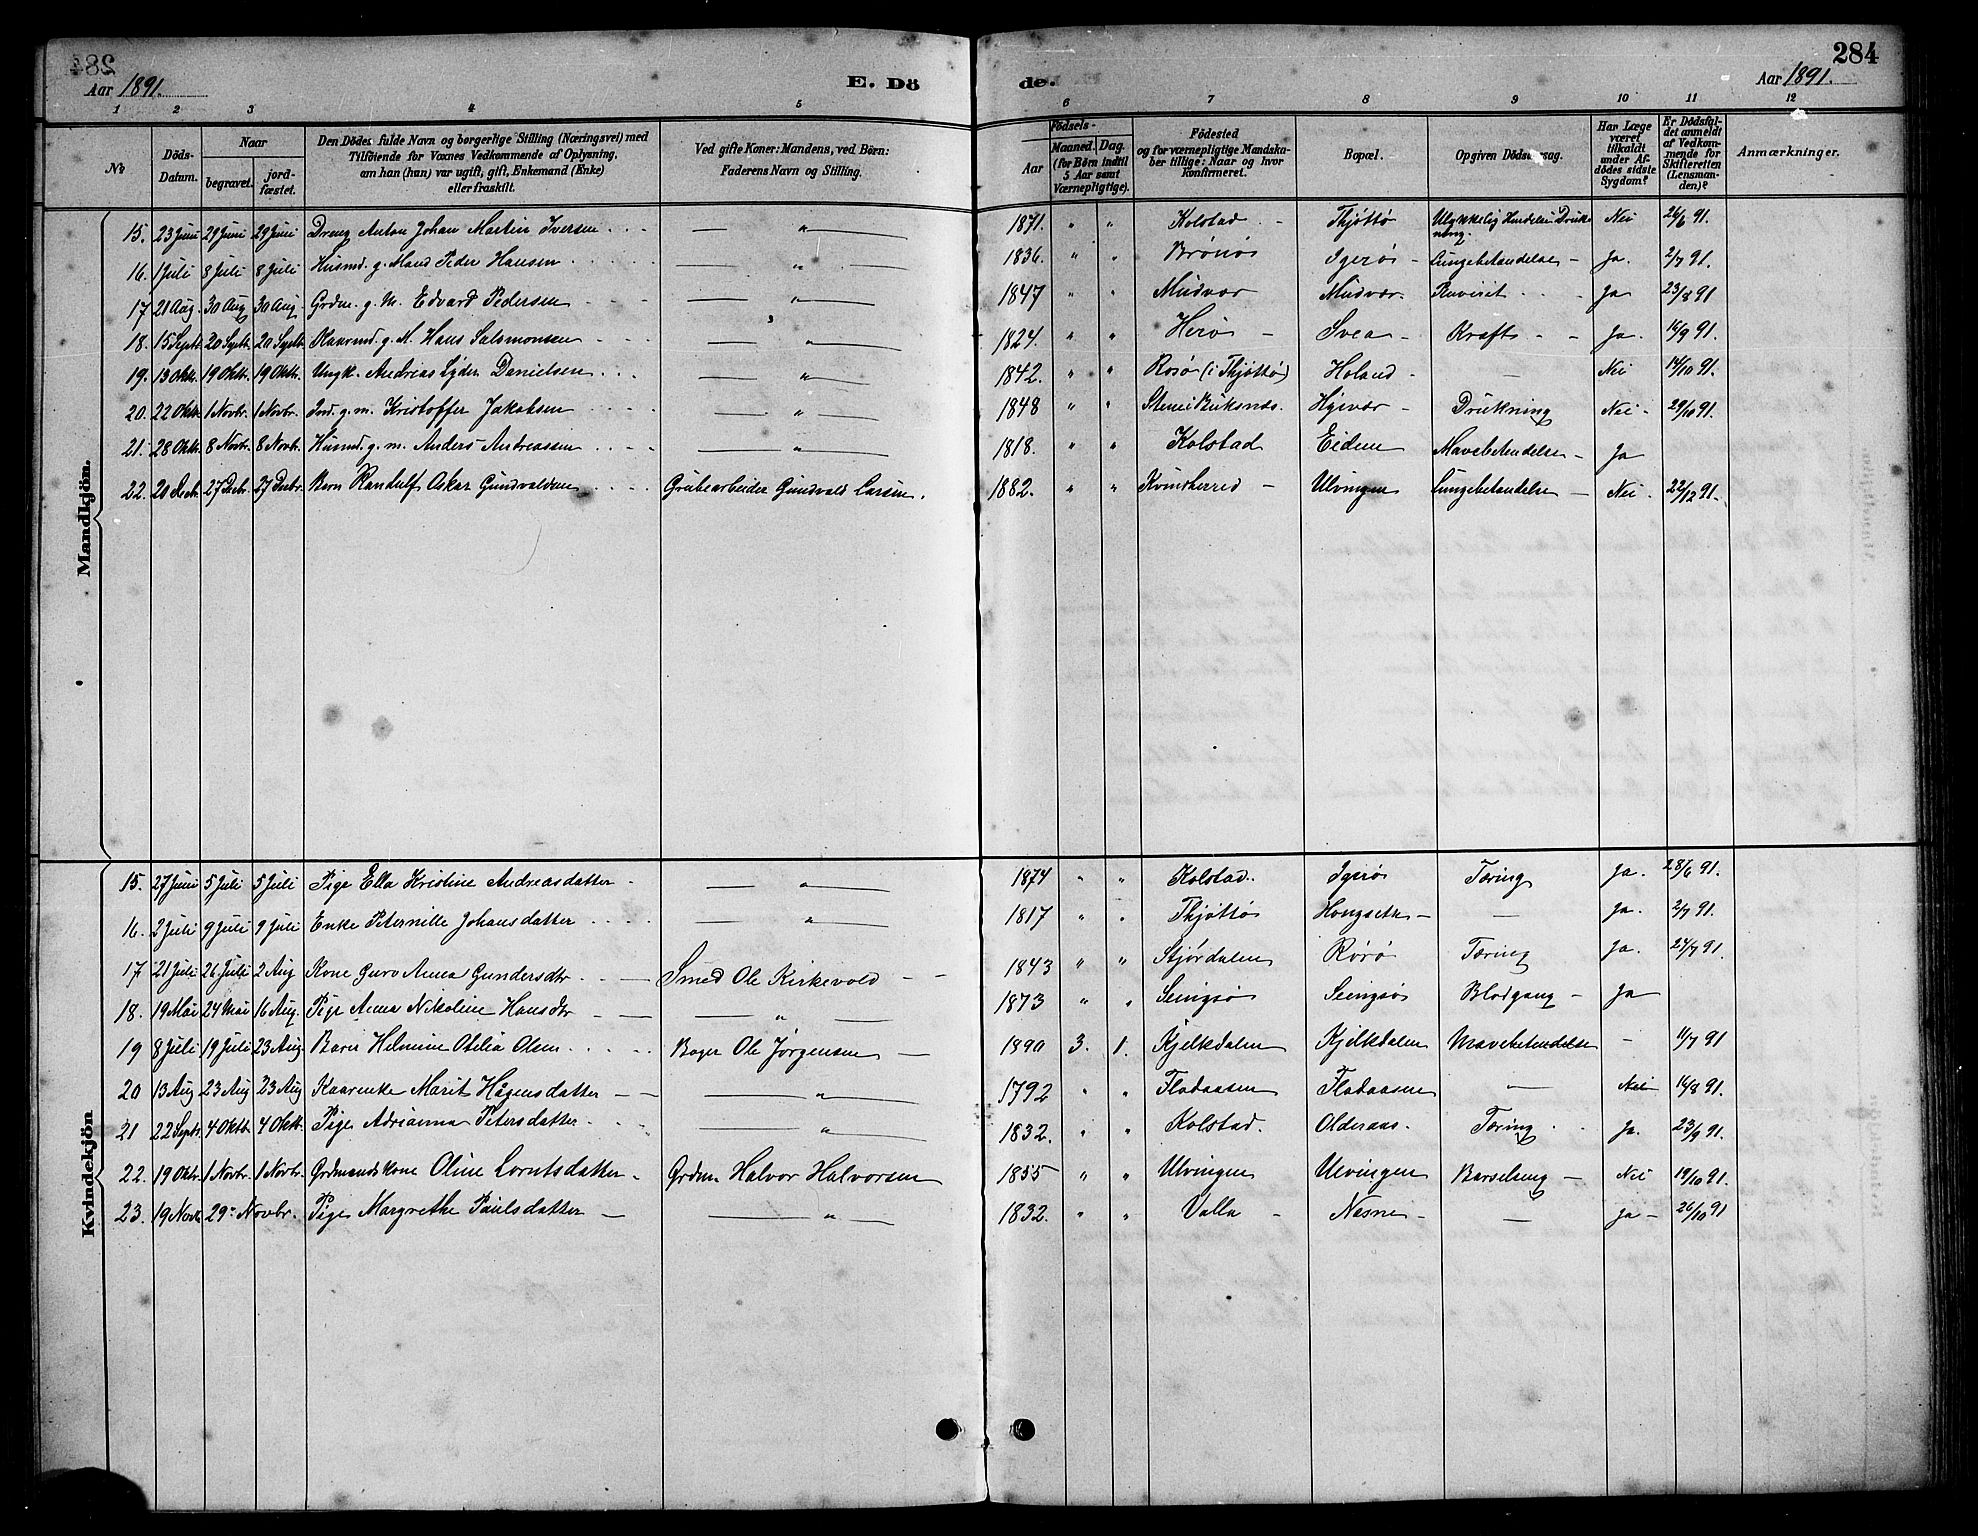 284
Aar 1891. E. Dö de. Aar 1891.
1 2 3 4 5 6 7 8 9 10 11 12
No Döds-Datum. Naar begravet. jord-fæstet. Den Dödes fulde Navn og borgerlige Stilling (Næringsvei) med Tilföiende for Voxnes Vedkommende af Oplysning, om han (hun) var ugift, gift, Enkemand (Enke) eller fraskilt. Ved gifte Koner: Mandens, ved Börn: Faderens Navn og Stilling. Födsels- Aar Maaned. Dag. (for Börn indtil 5 Aar samt Værnepligtige). Födested og for værnepligtige Mandska-ber tillige: Naar og hvor konfirmeret. Bopæl. Opgiven Dödsaarsag. Har Læge været tilkaldt under Af-dödes sidste Sygdom? Er Dödsfal-det anmeldt af Vedkom-mende for Skifteretten (Lensman-den)? Anmærkninger.
Mandkjön.
15. 23 Juni 29 Juni 29 Juni Dreng Anton Johan Martin Iversen — " — 1871. " " Kolstad - Thjøttø Ulykkelig Hendelse Drukning. Nei 26/6 91.
16. 1 Juli 8 Juli 8 Juli Husmd. g. Mand Peder Hansen — " — 1836. " " Brønøs Igerøs - Lungebetændelse - Ja. 2/7 91.
17 21 Aug. 30 Aug 30 Aug. Grdm. g. M. Edvard Pedersen — " — 1847 " " Mudvær Mudvær. - Ja 23/8 91
18. 15 Septr. 20 Septr. 20 Septr. g. M. Hans Salomonsen — " — 1824. " " Herø - Svea - Kræft - - Ja. 16/9 91.
19. 13 Oktr. 19 Oktr. 19 Oktr. Ungk. Andreas Lyder Danielsen — " — 1842. " " Rosø (i Thjøttø) Holand - — Nei 14/10 91.
20. 22 Oktr 1 Novbr. 1 Novbr. Ind. g. m. Kristoffer Jakobsen — " — 1848 " " Hysvær - Drukning Nei - 29/10 91.
21. 28 Oktr. 8 Novbr. 8 Novbr. Husmd. g. m. Anders Andreassen — " — 1818. " " Kolstad Eidem Mavebetændelse - Ja
22. 20 Decbr. 27 Decbr. 27 Decbr. Barn Randulf Oskar Gundvaldsen Grubearbeider Gundvald Larsen. 1882. " " Kvinsherred - Ulvingen Lungebetændelse - Nei - 22/12 91.
Kvindekjön
15. 27 Juni 5 Juli 5 Juli Pige Ella Kristine Andreasdatter - — " — 1874 " " Kolstad. Igerøs Tæring Ja. 28/6 91.
16. 2 Juli 9 Juli 9 Juli Enke Peternille Johansdatter — " — 1817 " " Thjøttø Hongseth - — Ja. 2/7 91.
17 21 Juli 26 Juli 2 Aug Kone Guro Anna Gundersdtr — Smed Ole Kirkevold - - 1843 " " Stjørdalen Rørø Tæring Ja. 27/7 91.
18. 19 Mai 24 Mai 16 Aug. Pige Anna Nikoline Hansdtr — " — 1873 " " Blodgang - Ja
19 8 Juli 19 Juli 23 Aug. Barn Helmine Otelia Olsen Bager Ole Jørgensen — 1890 3. 1. Kjelkdalen Kjelkdalen Mavebetændelse - 11/7 91
20 13 Aug 23 Aug 23 Aug Kaarenke Marit Hågensdatter — — " — 1792 " " Flodaasen Flodaasen — Nei 16/8 91.
21 22 Septr. 4 Oktb. 4 Oktb. Pige Adrianna Petersdatter — " — 1832. " " Kolstad. Olderaas. Tæring Ja. 23/9 91.
22. 19 Oktr. 1 Novbr. 1 Novbr. Grdmandskone Oline Lorntsdatter - Grdm. Halvor Halvorsen 1855 " " Ulvingen Ulvingen Barselseng - Nei 19/10 91.
23. 19 Novb. 29de Novbr. Pige Margrethe Paulsdatter — — " — 1832. " " Valla - Nesne - — Ja - 26/10 91